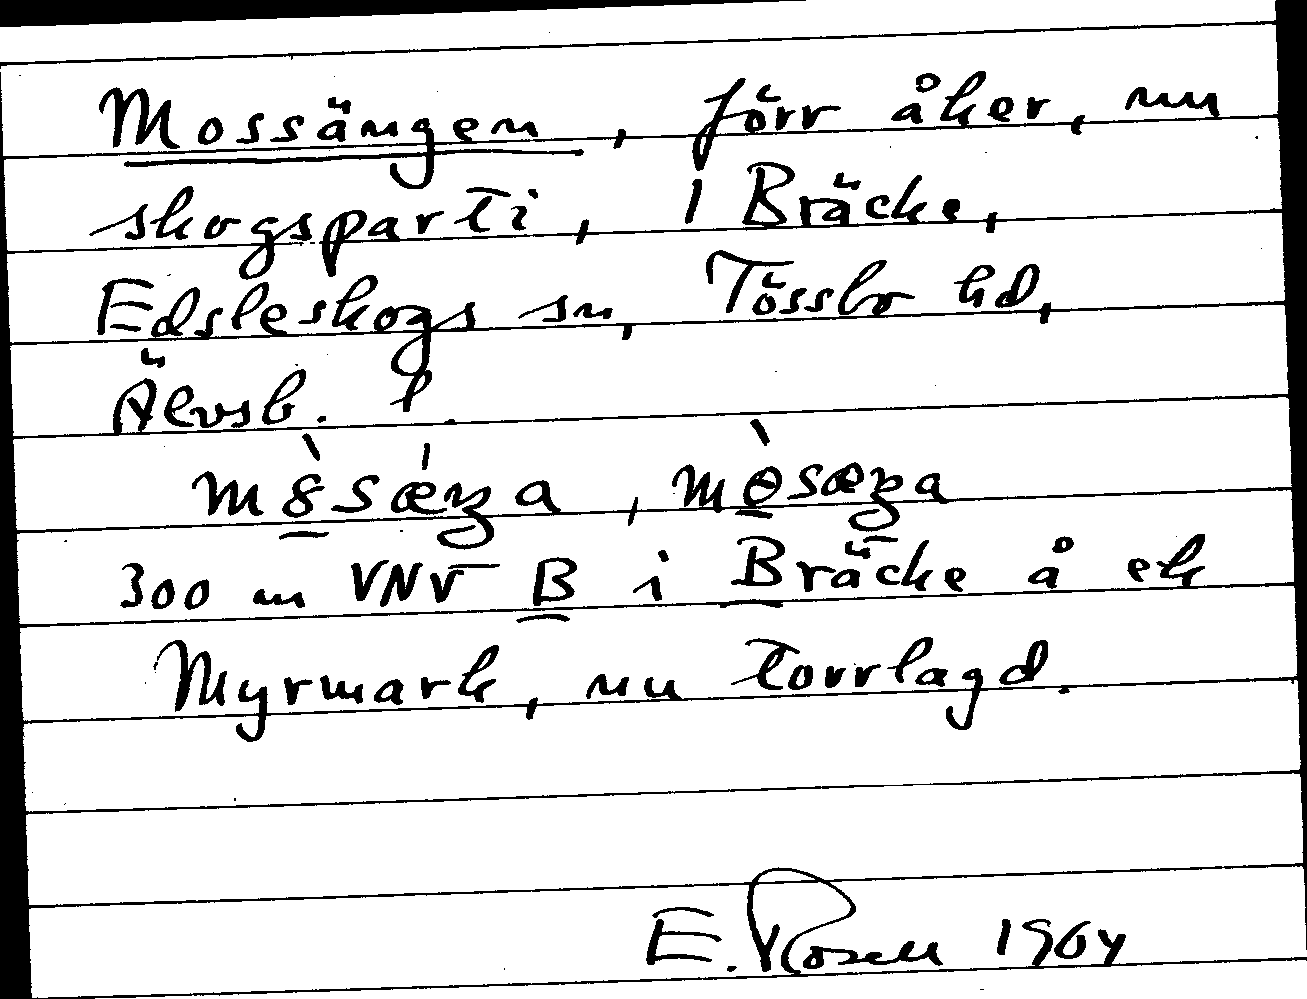 Mossängen, förr åker, nu
skogsparti, i Bräcke,
Edsleskogs sn, Tössbo hd,
Älvsb. l.
300 m VNV B i Bräcke å ek
Myrmark, nu torrlagd.
E. Rosell 1964